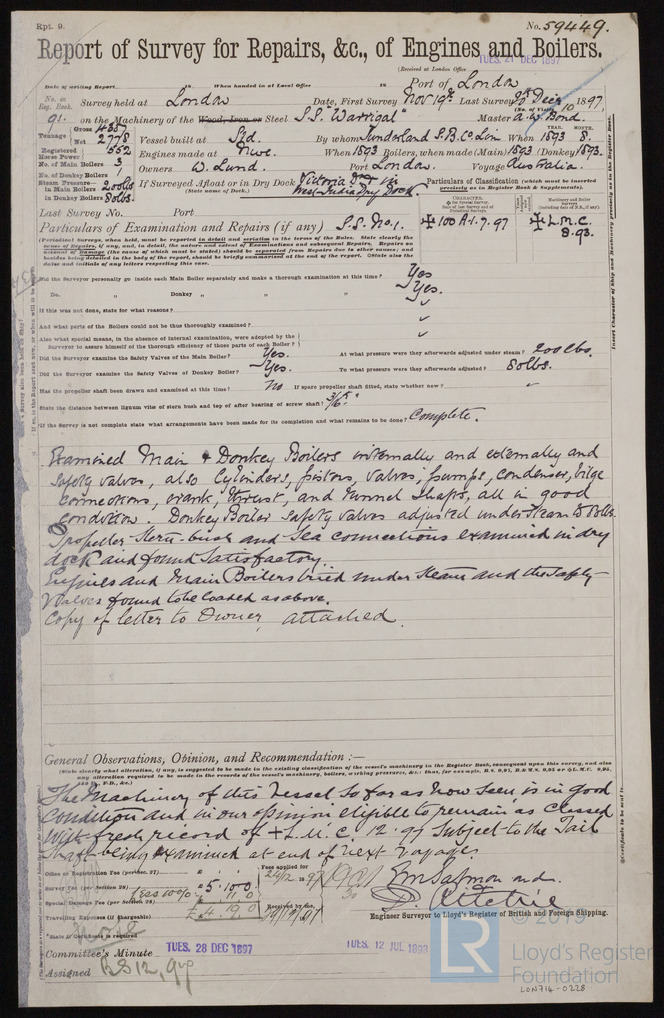 Rpt. 9.
No. 59449.
Report of Survey for Repairs, &c., of Engines and Boilers.
TUES. 21 DEC 1897
(Received at London Office
Date of writing Report 18 When handed in at Local Office 18 Port of London
No. in Reg. Book. Survey held at London Date, First Survey Nov 19th Last Survey 20 Dec 1897
(No. of Visits 10)
91. on the Machinery of the Wood, Iron or Steel S.S. "Warrigal" Master A. W. Bond.
Tonnage Gross 4387 Net 2778 Vessel built at Sld. By whom Sunderland S.B. Co Lim When 1893 8.
YEAR. MONTH.
Registered Horse Power 552 Engines made at Nwc. When 1893 Boilers, when made (Main) 1893 (Donkey) 1893.
No. of Main Boilers 3 Owners W. Lund. Port London. Voyage Australia.
No. of Donkey Boilers 1
Steam Pressure in Main Boilers 200 lbs in Donkey Boilers 80 lbs.
If Surveyed Afloat or in Dry Dock Victoria Dk in West India Dry Dock.
(State name of Dock.)
Particulars of Classification (which must be inserted precisely as in Register Book & Supplements).
Last Survey No. Port
Particulars of Examination and Repairs (if any) S.S. No. 1. 100 A.1. 7.97 L.M.C. 8.93.
Did the Surveyor personally go inside each Main Boiler separately and make a thorough examination at this time? Yes
Do. " Donkey " " " Yes.
If this was not done, state for what reasons?
And what parts of the Boilers could not be thus thoroughly examined?
Also what special means, in the absence of internal examination, were adopted by the
Surveyor to assure himself of the thorough efficiency of those parts of each Boiler?
Did the Surveyor examine the Safety Valves of the Main Boiler? Yes. At what pressure were they afterwards adjusted under steam? 200 lbs.
Did the Surveyor examine the Safety Valves of Donkey Boiler? Yes. To what pressure were they afterwards adjusted? 80 lbs.
Has the propeller shaft been drawn and examined at this time? No If spare propeller shaft fitted, state whether new? "
State the distance between lignum vitæ of stern bush and top of after bearing of screw shaft? 3/16"
If the Survey is not complete state what arrangements have been made for its completion and what remains to be done? Complete.
Examined Main & Donkey Boilers internally and externally and
safety valves, also Cylinders, pistons, valves, pumps, condenser, bilge
connections, crank, thrust, and tunnel shafts, all in good
condition. Donkey Boiler safety valves adjusted under steam 80 lbs.
Propeller stern bush and Sea connections examined in dry
dock and found Satisfactory.
Engines and Main Boilers tried under steam and the safety
valves found to be loaded as above.
Copy of letter to Owner attached.
General Observations, Opinion, and Recommendation :—
(State clearly what alteration, if any, is suggested to be made in the existing classification of the vessel's machinery in the Register Book, consequent upon this survey, and also
any alteration required to be made in the records of the vessel's machinery, boilers, working pressures, &c.: thus, for example, B.S. 9,95, B.&M.S. 9,95 or L.M.C. 9,95,
The Machinery of this Vessel so far as now seen is in good
condition and in our opinion eligible to remain as Classed
with fresh record of + L.M.C. 12.97 Subject to the Tail
Shaft being examined at end of next Voyage.
Office or Registration Fee (per Sec. 27) £
Fees applied for
Survey Fee (per Section 28) £ 5. 10. 0
(less 10%) 11. 0
Special Damage Fee (per Section 28) £ 4. 19. 0
Received by me,
Travelling Expenses (if chargeable)
E. M. Salmon and
D. Ritchie
Engineer Surveyor to Lloyd's Register of British and Foreign Shipping.
*State if Certificate is required
Committee's Minute TUES. 28 DEC 1897
TUES. 12 JUL 1898
Assigned B.S 12, 97
LR
© 2019
Lloyd's Register
Foundation
LON714-0228